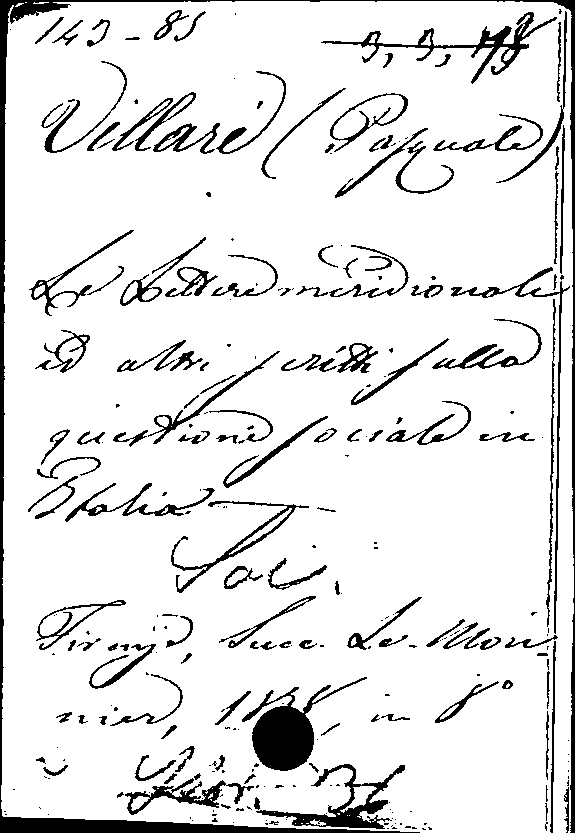 143-85
3, 3, 78
Villari (Pasquale)
Le Lettere meridionali
ed altri scritti sulla
questione sociale in
Italia
Soc.
Firenze, Succ. Le-Mon-
nier, 1878, in 8°